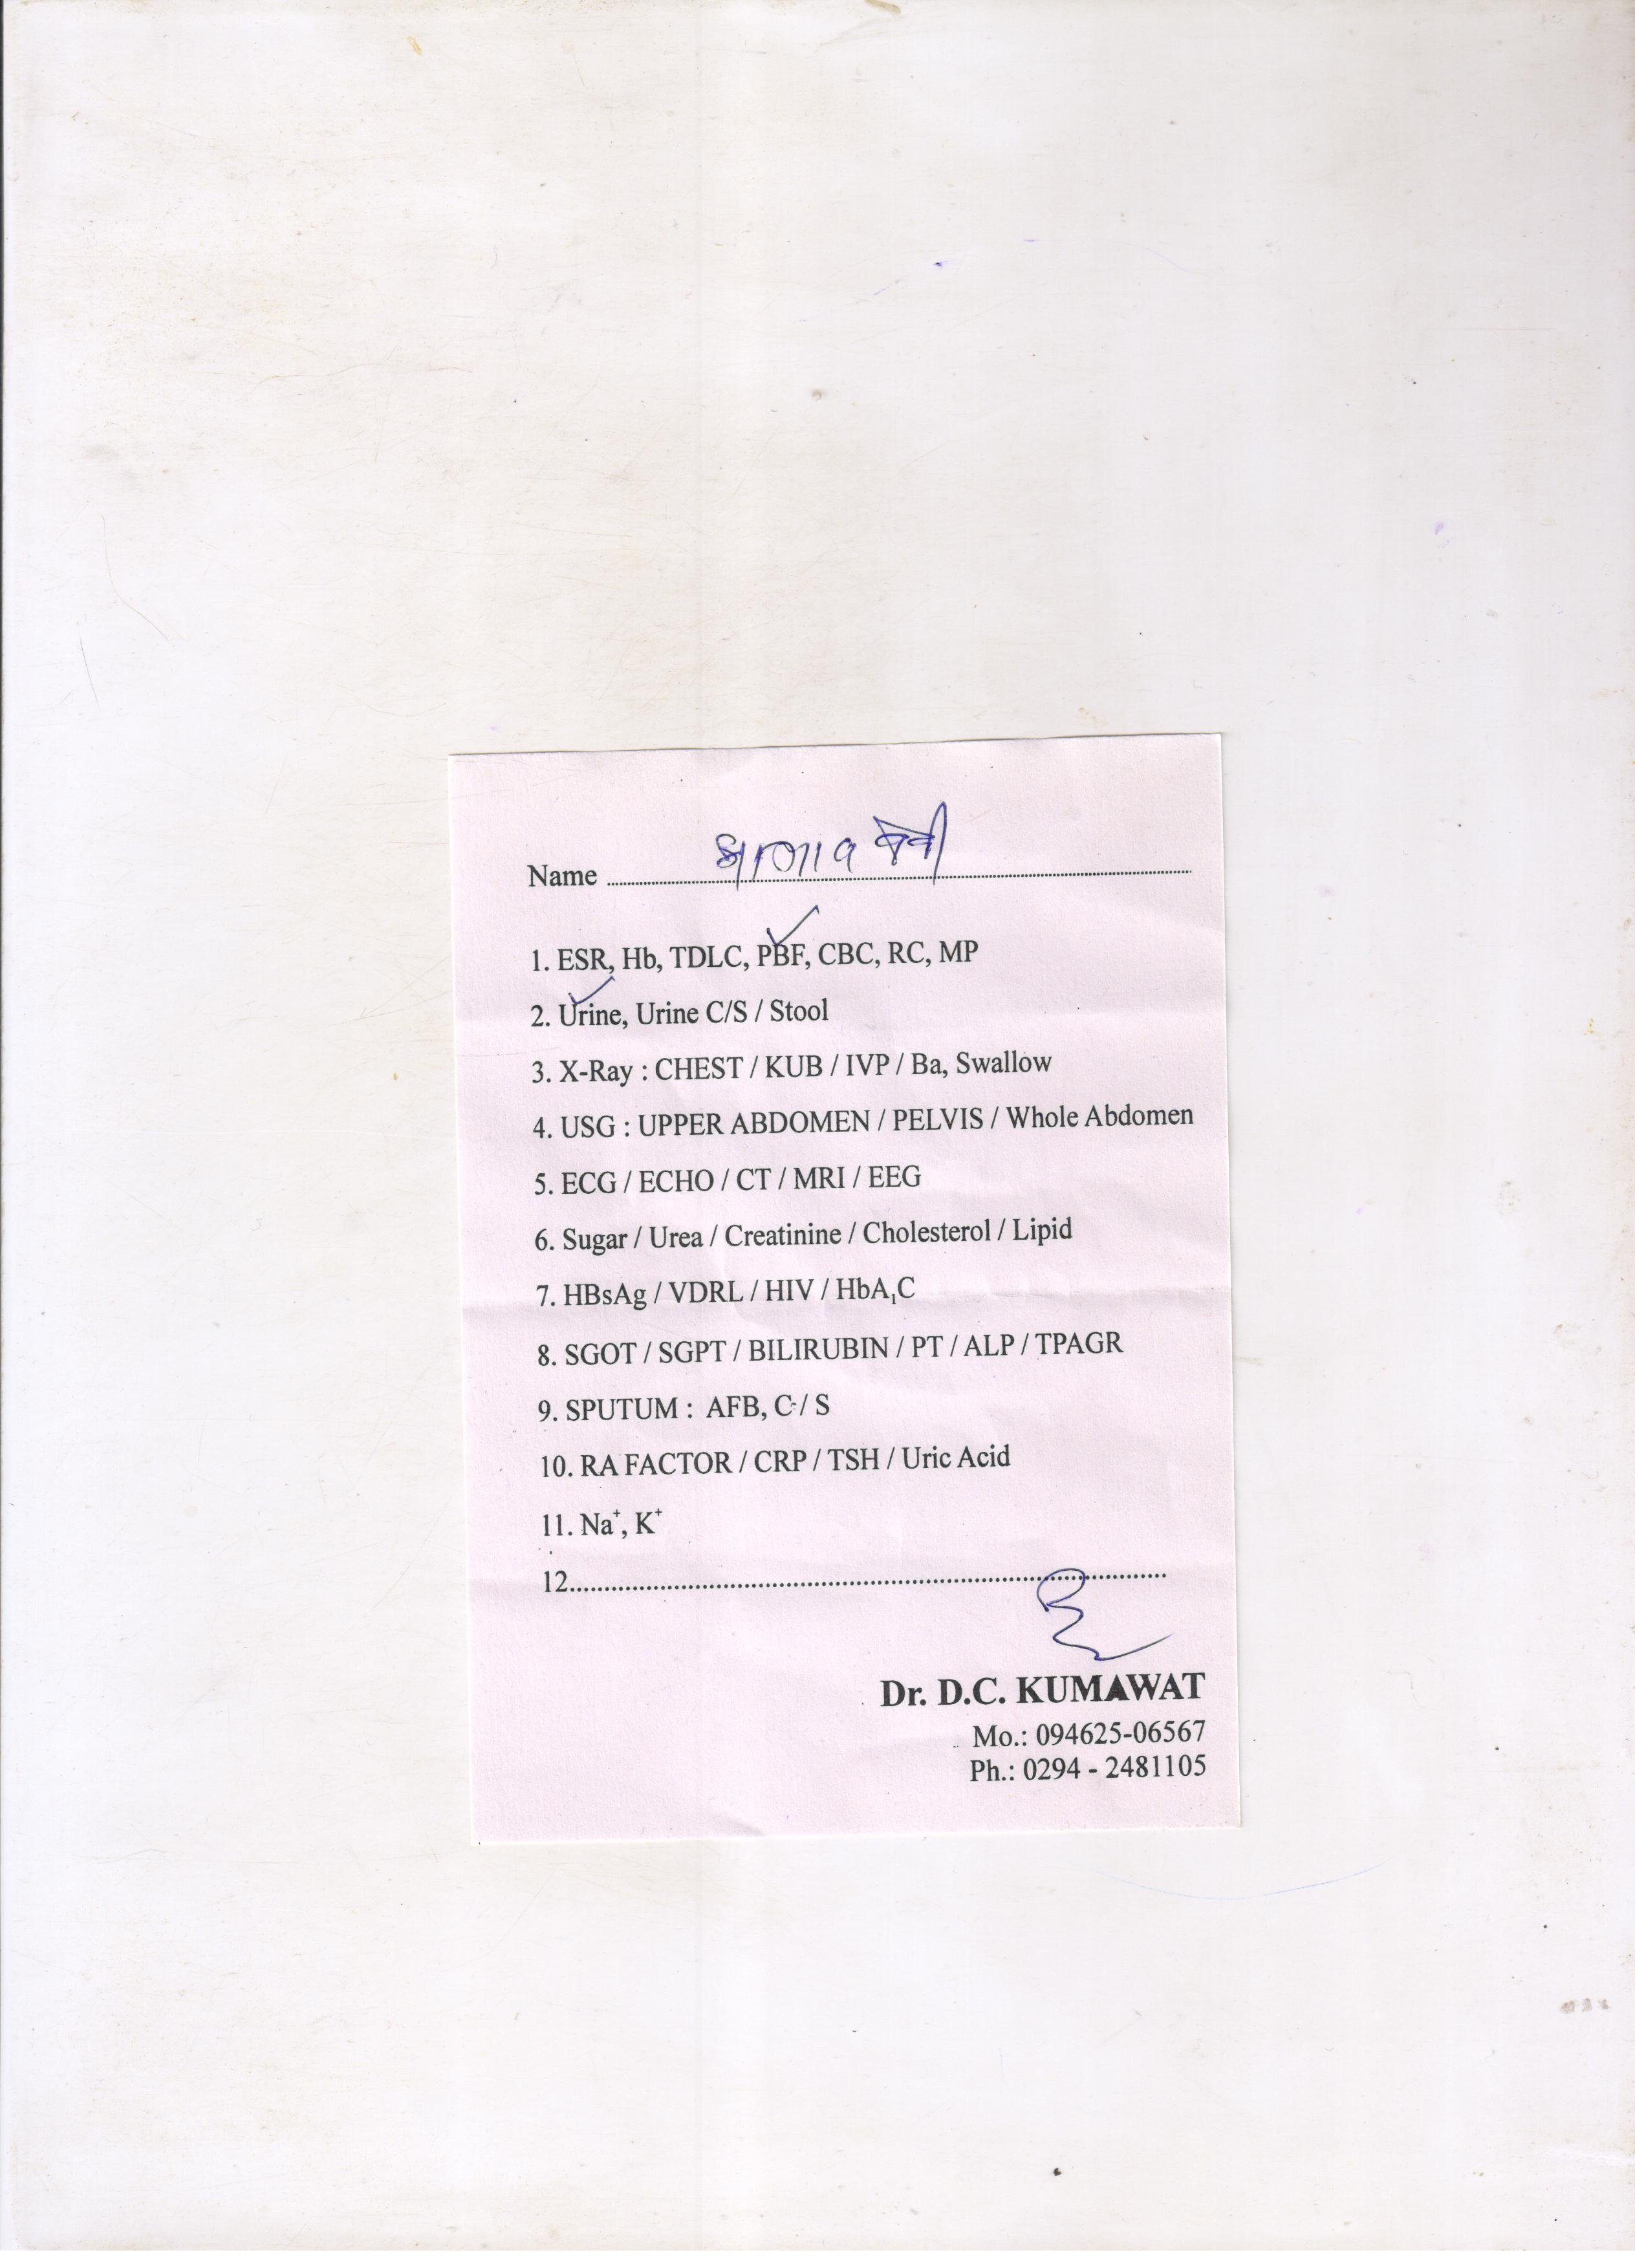 Name
1. ESR, Hb, TDLC, PBF, CBC, RC, MP
2. Urine, Urine C/S / Stool
3. X-Ray : CHEST / KUB / IVP / Ba, Swallow
4. USG : UPPER ABDOMEN / PELVIS / Whole Abdomen
5. ECG / ECHO / CT / MRI / EEG
6. Sugar / Urea / Creatinine / Cholesterol / Lipid
7. HBsAg / VDRL / HIV / HbA₁C
8. SGOT / SGPT / BILIRUBIN / PT / ALP / TPAGR
9. SPUTUM : AFB, C / S
10. RA FACTOR / CRP / TSH / Uric Acid
11. Na⁺, K⁺
12.
Dr. D.C. KUMAWAT
Mo.: 094625-06567
Ph.: 0294 - 2481105